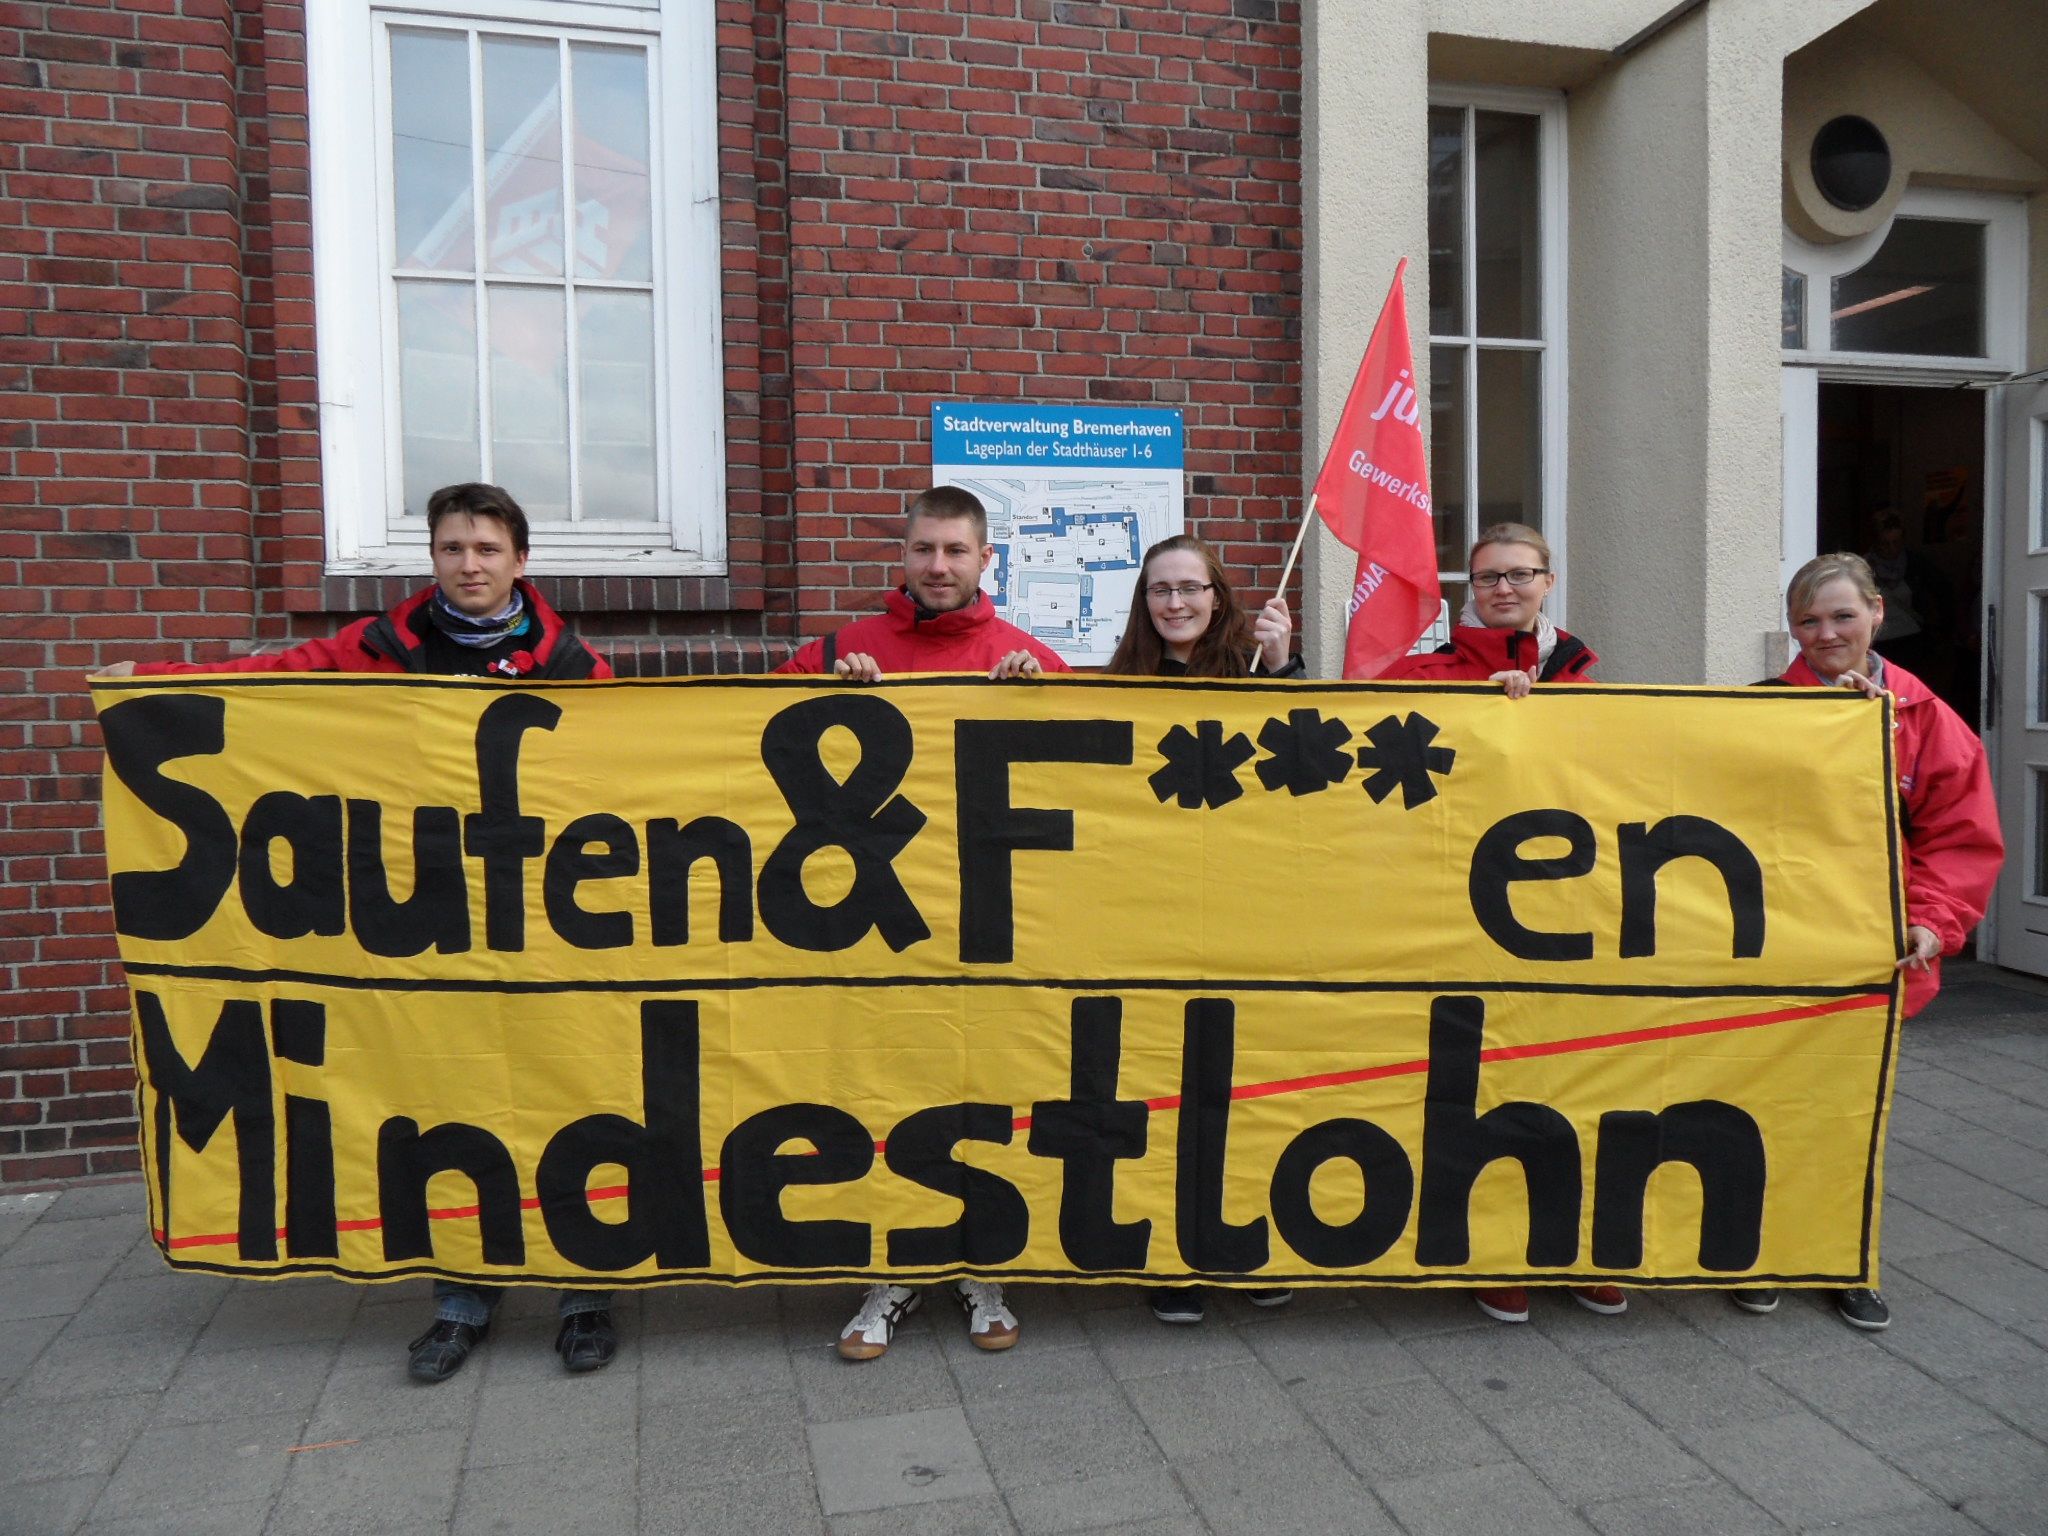 Stadtverwaltung Bremerhaven
Lageplan der Stadthäuser 1-6
Standort
Bürgerbüro
Nord
Saufen & F***en
Mindestlohn